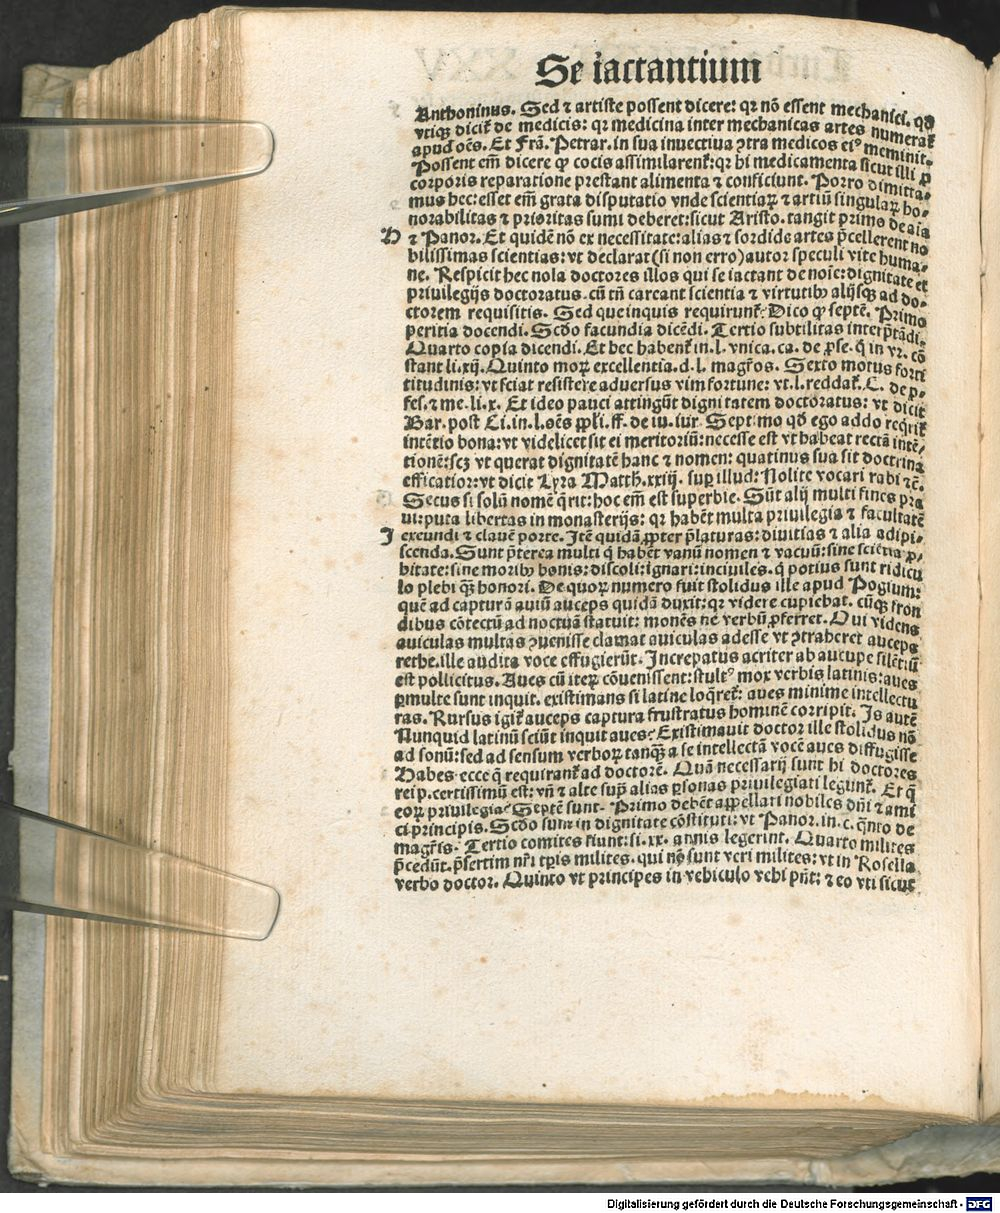 Se iactantium
Anthoninus. Sed ⁊ artiste possent dicere: qꝛ nõ essent mechanici. qð
vtiqꝫ dicit᷑ de medicis: qꝛ medicina inter mechanicas artes numerat᷑
apud oẽs. Et Frã. Petrar. in sua inuectiua ꝯtra medicos eiꝰ meminit.
Possent em̃ dicere ꝙ cocis assimilarent᷑: qꝛ hi medicamenta sicut illi ꝓ
corporis reparatione prestant alimenta ⁊ conficiunt. Porro dimitta⸗
mus hec: esset em̃ grata disputatio vnde scientiaꝝ ⁊ artiũ singulaꝝ ho⸗
norabilitas ⁊ prioritas sumi deberet: sicut Aristo. tangit primo de aĩa
H ⁊ Panor. Et quidẽ nõ ex necessitate: alias ⁊ sordide artes p̃cellerent no
bilissimas scientias: vt declarat (si non erro) autor speculi vite huma⸗
ne. Respicit hec nola doctores illos qui se iactant de noĩe: dignitate et
priuilegijs doctoratus. cũ tñ careant scientia ⁊ virtutibꝫ alijsqꝫ ad do⸗
ctorem requisitis. Sed que inquis requirunt᷑? Dico ꝙ septẽ. Primo
peritia docendi. Scðo facundia dicẽdi. Tertio subtilitas interp̃tãdi.
Quarto copia dicendi. Et hec habent᷑ in. l. vnica. ca. de ꝓfe. q̃ in vr. cõ
stant li. xij. Quinto moꝝ excellentia. d. l. magr̃os. Sexto motus forti
titudinis: vt sciat resistere aduersus vim fortune: vt. l. reddat᷑. C. de ꝓ⸗
fes. ⁊ me. li. x. Et ideo pauci attingũt dignitatem doctoratus: vt dicit
Bar. post Ci. in. l. oẽs ppl̃i. ff. de iu. iur. Septimo qð ego addo reqͥrit᷑
intẽtio bona: vt videlicet sit ei meritoriũ: necesse est vt habeat rectã intẽ⸗
tionẽ: scꝫ vt querat dignitatẽ hanc ⁊ nomen: quatinus sua sit doctrina
efficatior: vt dicit Lyra Matth. xxiij. suꝑ illud: Nolite vocari rabi ⁊c̃.
Secus si solũ nomẽ q̃rit: hoc em̃ est superbie. Sũt alij multi fines pra
ui: puta libertas in monasterijs: qꝛ habẽt multa priuilegia ⁊ facultatẽ
I exeundi ⁊ clauẽ porte. Itẽ quidã ꝓpter p̃laturas: diuitias ⁊ alia adipi⸗
scenda. Sunt p̃terea multi q̃ habẽt vanũ nomen ⁊ vacuũ: sine sciẽtia ꝓ⸗
bitate: sine moribꝫ bonis: discoli: ignari: inciuiles. q̃ potius sunt ridicu
lo plebi qꝫ̃ honori. De quoꝝ numero fuit stolidus ille apud Pogium:
quẽ ad capturã auiũ auceps quidã duxit: qꝛ videre cupiebat. cũqꝫ fron
dibus cõtectũ ad noctuã statuit: monẽs ne verbũ ꝓferret. Qui videns
auiculas multas ꝯuenisse clamat auiculas adesse vt ꝯtraheret auceps
rethe. ille audita voce effugierũt. Increpatus acriter ab aucupe silẽtiũ
est pollicitus. Aues cũ iteꝝ cõuenissent: stultꝰ mox verbis latinis: aues
ꝑmulte sunt inquit. existimans si latine loq̃ret᷑: aues minime intellectu
ras. Rursus igit᷑ auceps captura frustratus hominẽ corripit. Is autẽ
Nunquid latinũ sciũt inquit aues? Existimauit doctor ille stolidus nõ
ad sonũ: sed ad sensum verboꝝ tanqꝫ̃ a se intellectã vocẽ aues diffugisse
Habes ecce q̃ requirant᷑ ad doctorẽ. Quã necessarij sunt hi doctores
rei p. certissimũ est: vñ ⁊ alte suꝑ alias ꝑsonas priuilegiati legunt᷑. Et q̃
eoꝝ priuilegia? Septẽ sunt. Primo debẽt appellari nobiles dñi ⁊ ami
ci principis. Scðo sunt in dignitate cõstituti: vt Panor. in. c. qͥnto de
magr̃is. Tertio comites fiunt: si. xx. annis legerint. Quarto milites
p̃cedũt. p̃sertim nr̃i tꝑis milites. qui nõ sunt veri milites: vt in Rosella
verbo doctor. Quinto vt principes in vehiculo vehi pñt: ⁊ eo vti sicut
Digitalisierung gefördert durch die Deutsche Forschungsgemeinschaft - DFG